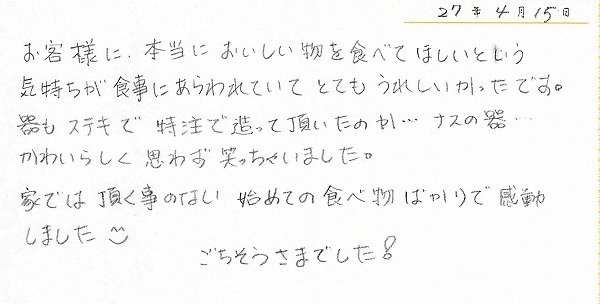 27年4月15日
お客様に、本当においしい物を食べてほしいという
気持ちが食事にあらわれていてとてもうれしいかったです。
器もステキで特注で造って頂いたのか…ナスの器…
かわいらしく思わず笑っちゃいました。
家では頂く事のない始めての食べ物ばかりで感動
しました☺
ごちそうさまでした!